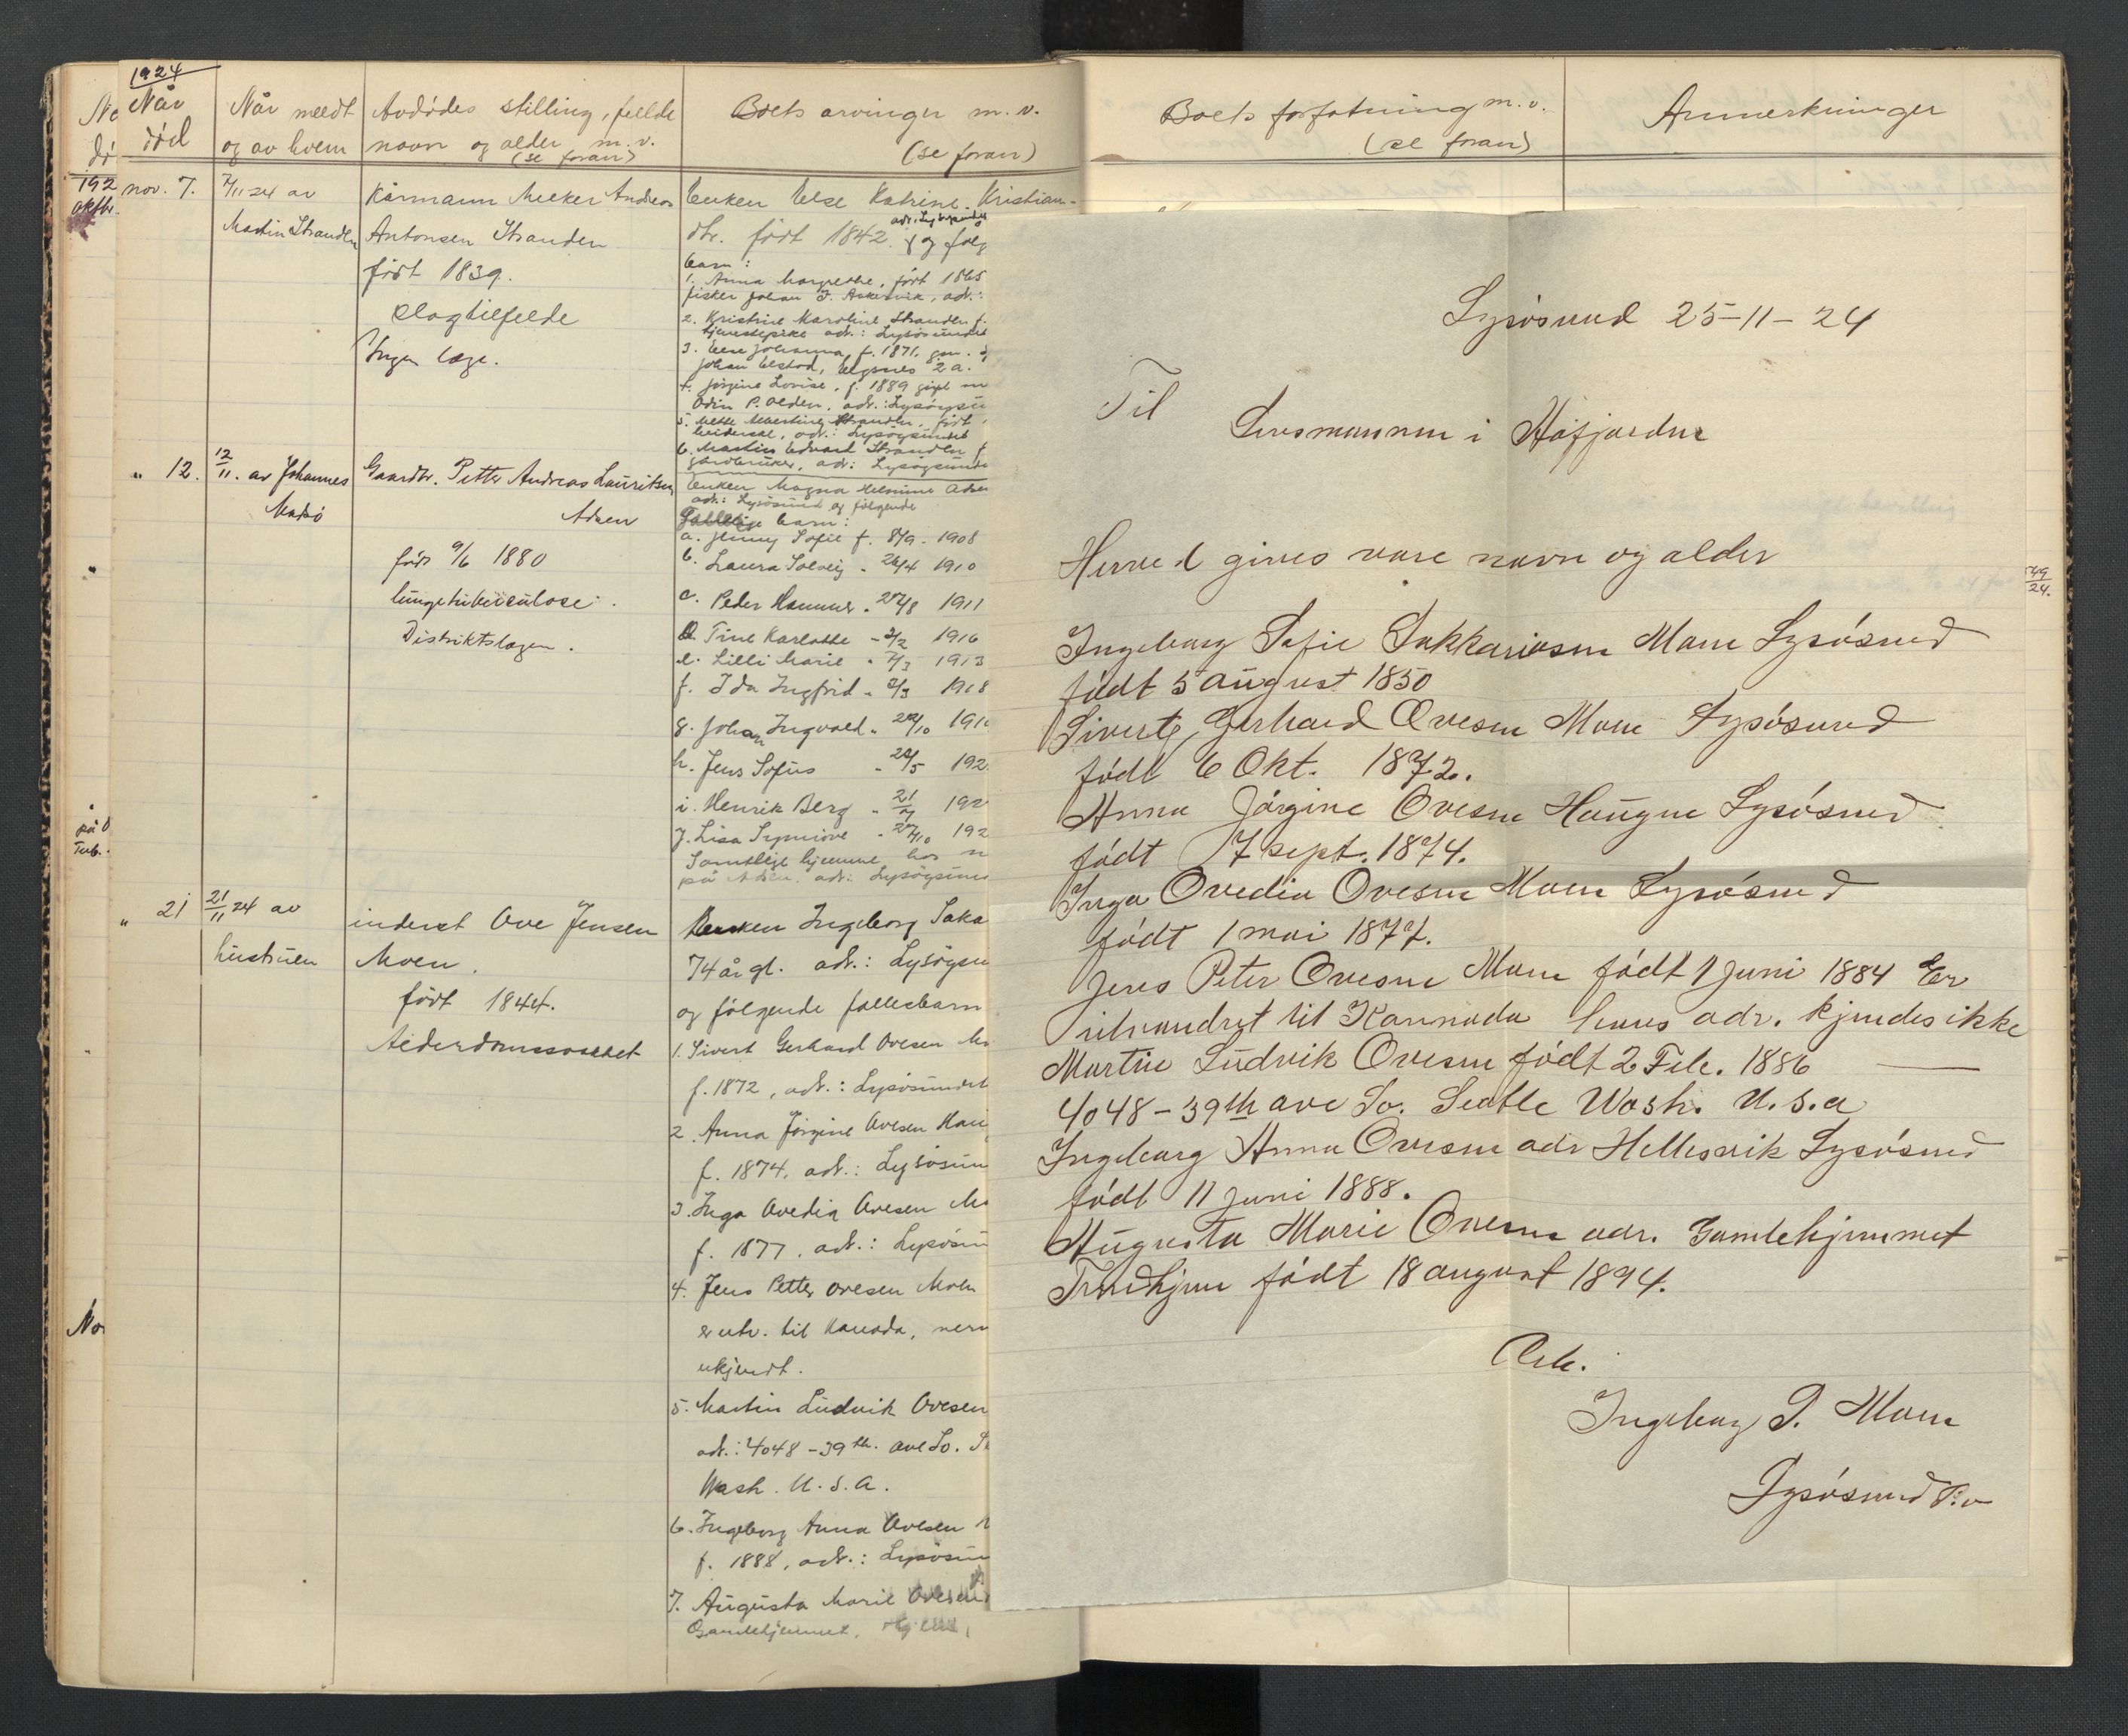 1924
Når
död
Når meldt
og av hvem
Avdødes stilling, fulde
navn og alder m. v.
(se foran)
Boets arvinger m. v.
(se foran)
192
oktbr.
nov. 7.
7/11 24 av
Martin Stranden
Kårmann Meker Andreas
Antonsen Stranden
født 1839.
Slagtilfelde
Ingen læge.
Enken Else Katrine Kristian-
dtr. født 1842 og følg
adr. Lysøsundet
barn:
1. Anna Margrethe, født 1865
fisker Johan J. Askervik, adr.:
2. Kristine Karoline Stranden f.
tjenestepike adr.: Lysøsundet
3. Else Johanna, f. 1871, gm.
Johan
4. Jörgine Lovise, f. 1889 gift m
Odin P. Olden, adr.: Lysøysu
5. Mette Albertine Stranden, født
adr.: Lysøysundet
6. Martin Edvard Stranden f
gårdbruker, adr: Lysøysunde
" 12.
12/11. av Johannes
Madsö
Gaardbr. Petter Andreas Lauritsen
Adsen
født 9/6 1880
lungetuberculose.
Distriktslægen.
Enken Magna
adr.: Lysösund og følgende
barn:
a. Jenny Sofie f. 8/9 - 1908
b. Laura Solveig - 26/4 1910
c. Peder Hammer - 27/8 1911
d. Tine Karlotte - 2/2 1916
e. Lilli Marie - 7/3 1913
f. Ida Ingfrid - 2/3 1918
g. Johan Ingvald - 28/10 191
h. Jens Sofus - 28/5 192
i. Henrik Berg - 21/7 192
j. Lisa Synnöve - 27/10 192
Samtlige hjemme hos m
på Adsen. adr.: Lysøysun
" 21
21/11 24 av
hustruen
inderst Ove Jensen
Moen.
født 1844.
Alderdomssvakhet
Enken Ingeborg Saka
74 år gl. adr.: Lysøysu
og følgende fellesbarn
1. Sivert Gerhard Ovesen Mo
f. 1872, adr.: Lysøsundet
2. Anna Jörgine Ovesen Hau
f. 1874, adr.: Lysøsun
3. Inga Ovedia Ovesen Mo
f. 1877, adr.: Lysøsun
4. Jens Petter Ovesen Moen
er utv. til Kanada, nerm
ukjendt.
5. Martin Ludvik Ovesen
adr.: 4048 - 39th. ave So. S
Wash. U. S. A.
6. Ingeborg Anna Ovesen
f. 1888, adr.: Lysøsun
7. Augusta Marie Ovesen
Gamlehjemmet,
Boets forfatning m. v.
(se foran)
Anmerkninger
49/24.
Lysösund 25-11-24
Til
Lensmannen i Stofjorden
Herved gives vare navn og alder
Ingeborg Sofie Sakkariasen Moen Lysösund
födt 5 august 1850
Sivert Gerhard Ovesen Moen Lysösund
födt 6 Okt. 1872.
Anna Jörgine Ovesen Haugen Lysösund
födt 17 sept. 1874.
Inga Ovedia Ovesen Moen Lysösund
födt 1 mai 1877.
Jens Peter Ovesen Moen födt 1 juni 1884 Er
utvandret til Kannada hans adr. kjendes ikke
Martin Ludvik Ovesen födt 2 Feb. 1886 —
4048 - 39th ave So. Seatle Wash. U.S.a
Ingeborg Anna Ovesen adr Hellesvik Lysösund
födt 11 juni 1888.
Augusta Marie Ovesen adr. Gamlehjemmet
Trondhjem födt 18 august 1894.
Ærb.
Ingeborg S. Moen
Lysösund P.o